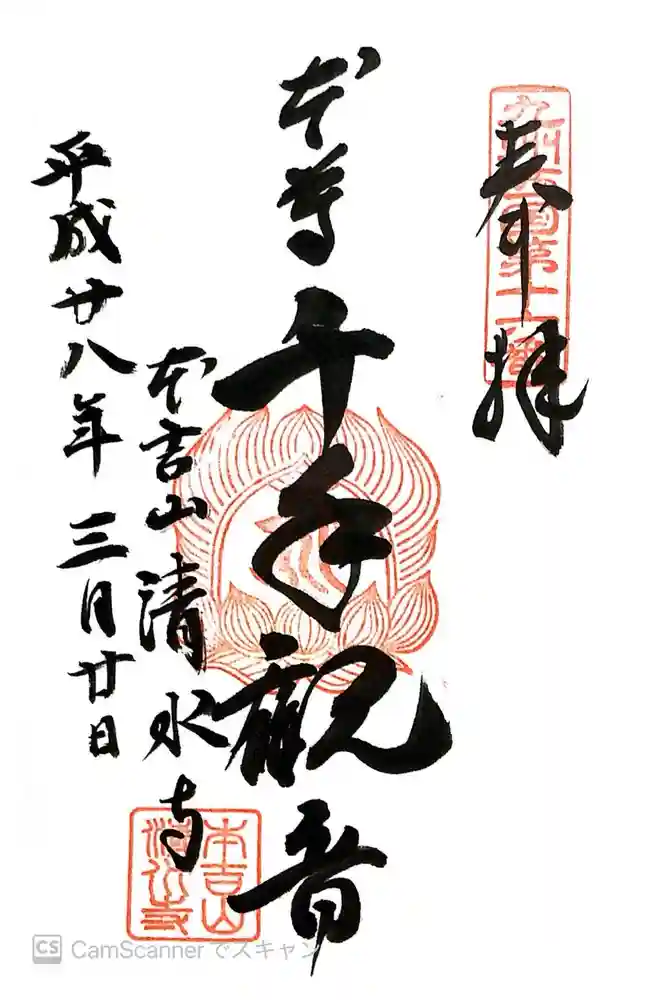 奉拝
九州西国第十六番
本尊
千手觀音
本吉山
清水寺
平成廿八年三月廿日
本吉山
清水寺
CS CamScanner でスキャン